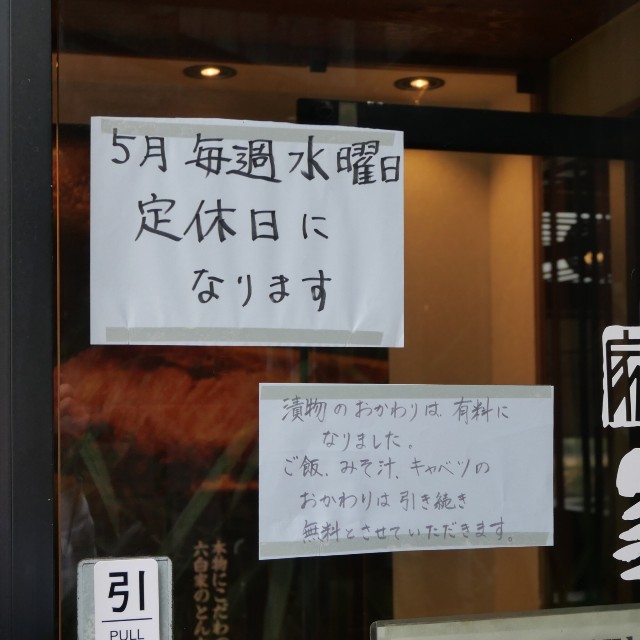 5月 毎週 水曜日
定休日に
なります
漬物のおかわりは、有料に
なりました。
ご飯、みそ汁、キャベツの
おかわりは引き続き
無料とさせていただきます。
本物にこだわ
六白家のとん
引
PULL